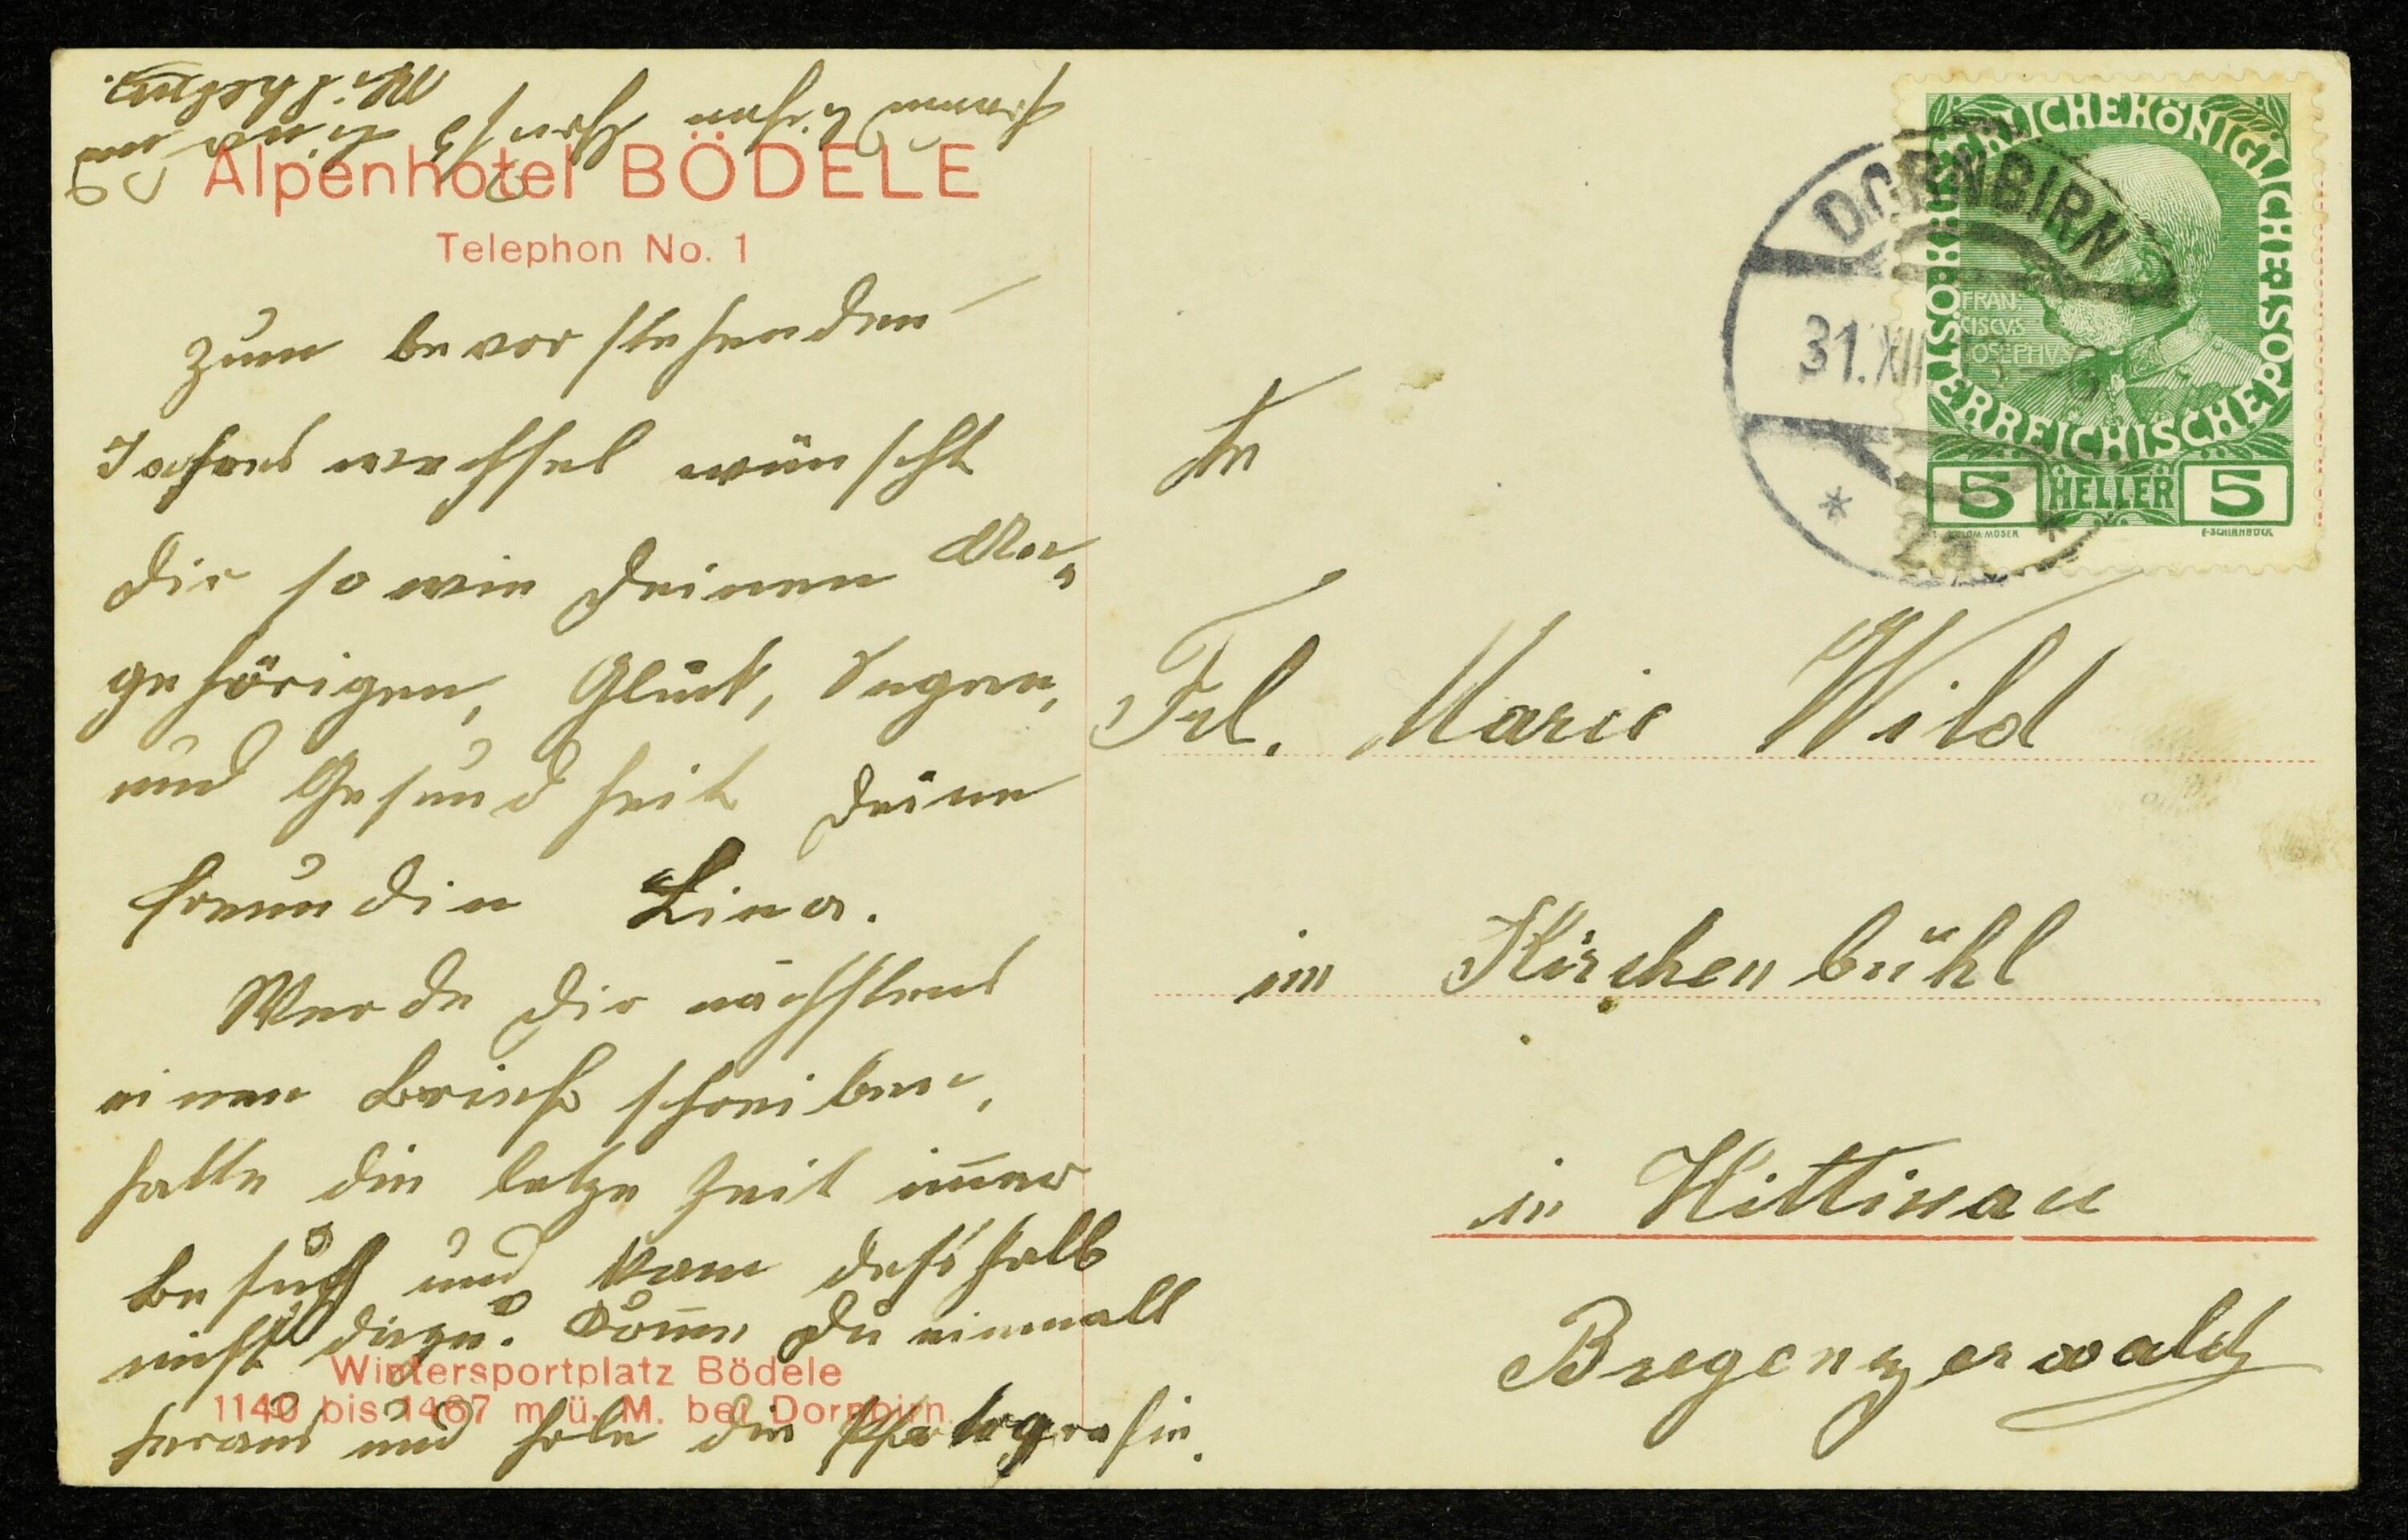 Alpenhotel BÖDELE
Telephon No. 1
Zum bevorstehenden
Jahreswechsel wünscht
Dir sowie Deinen An„
gehörigen, Glück, Segen,
und Gesundheit Deine
Freundin Lina.
Werde Dir nächstens
einen Brief schreiben,
hatte die letze Zeit im̅er
Besuch und kam deßhalb
nicht dazu. Kom̅e Du einmall
heraus und hole die Photografie.
Wintersportplatz Bödele
1140 bis 1467 m ü. M. bei Dornbirn.
Wilhelm.
KAISERLICHE KÖNIGLICHE ÖSTERREICHISCHE POST
FRAN:
CISCVS
IOSEPHVS
5 HELLER 5
DORNBIRN
31.XII
* 2a *
An
Frl. Marie Wild
im Kirchenbühl
in Hittisau
Bregenzerwald